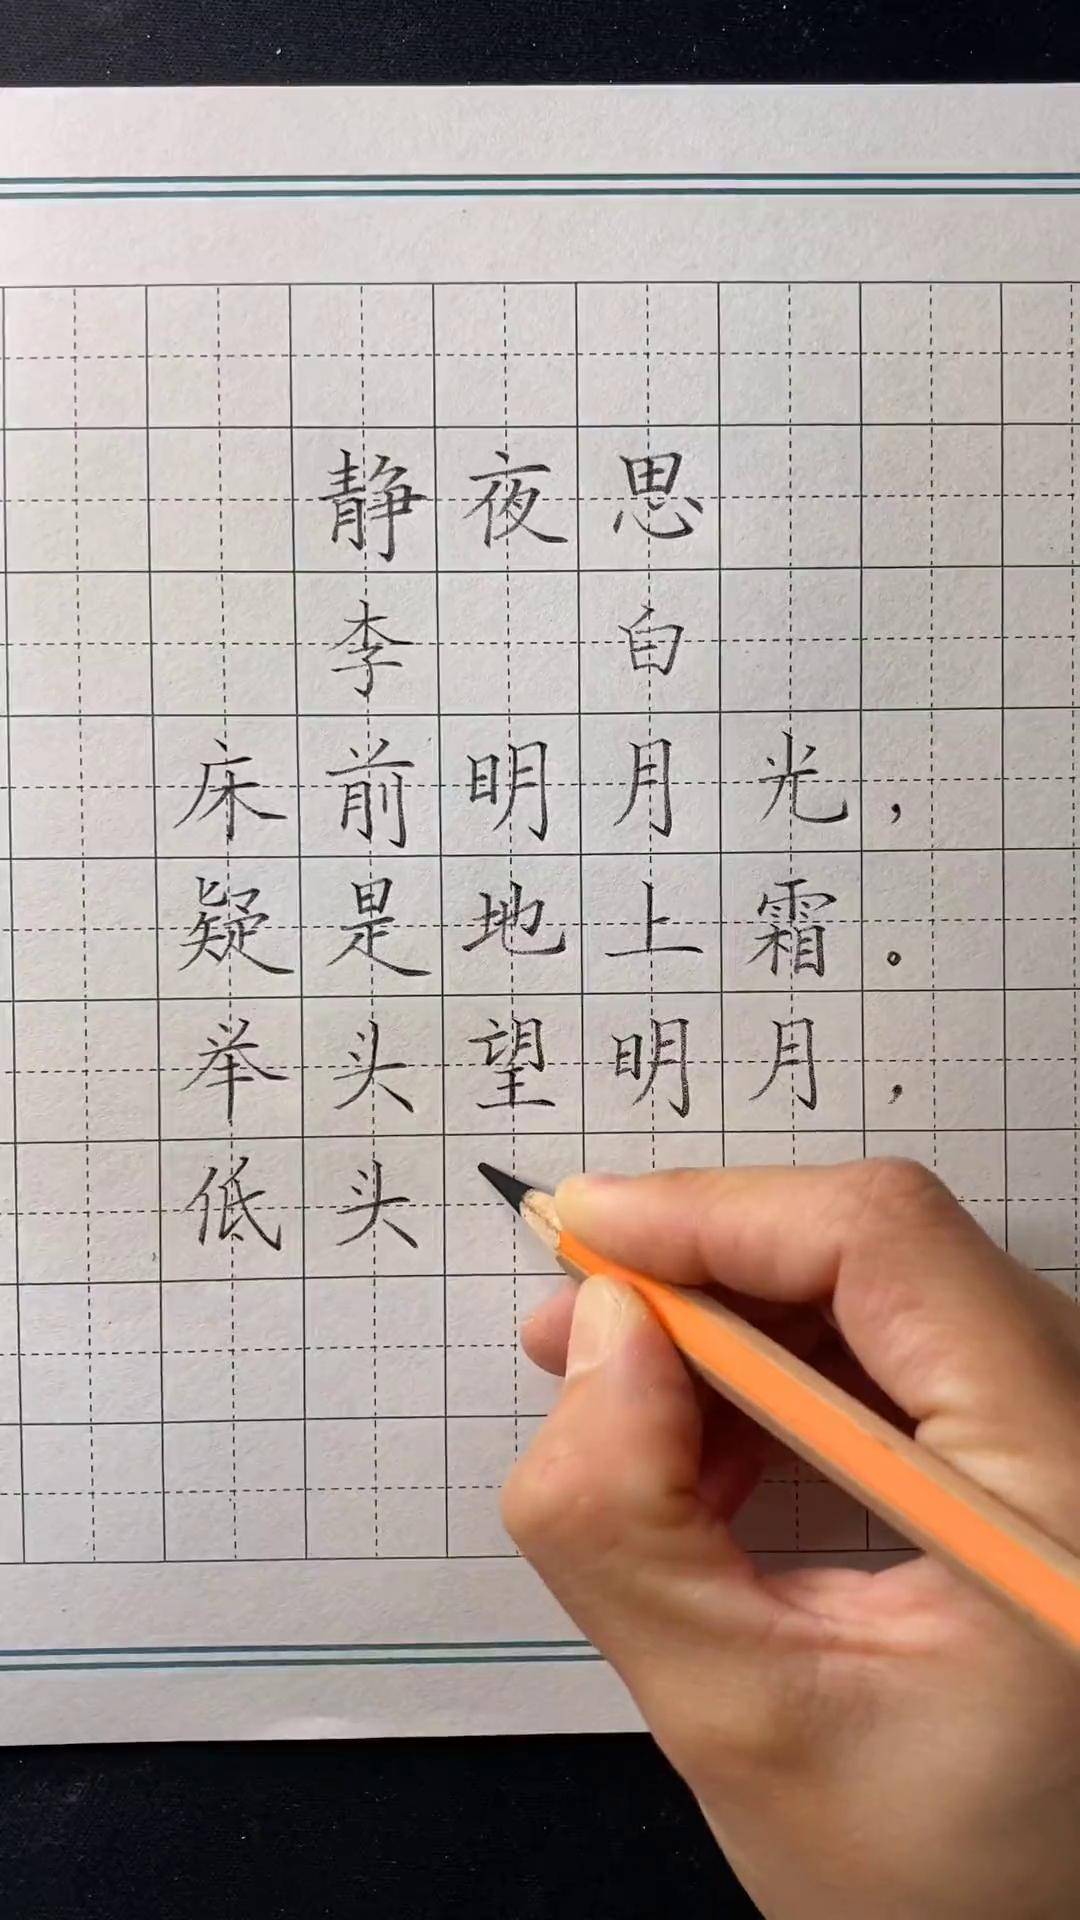 静夜思
李 白
床前明月光，
疑是地上霜。
举头望明月，
低头